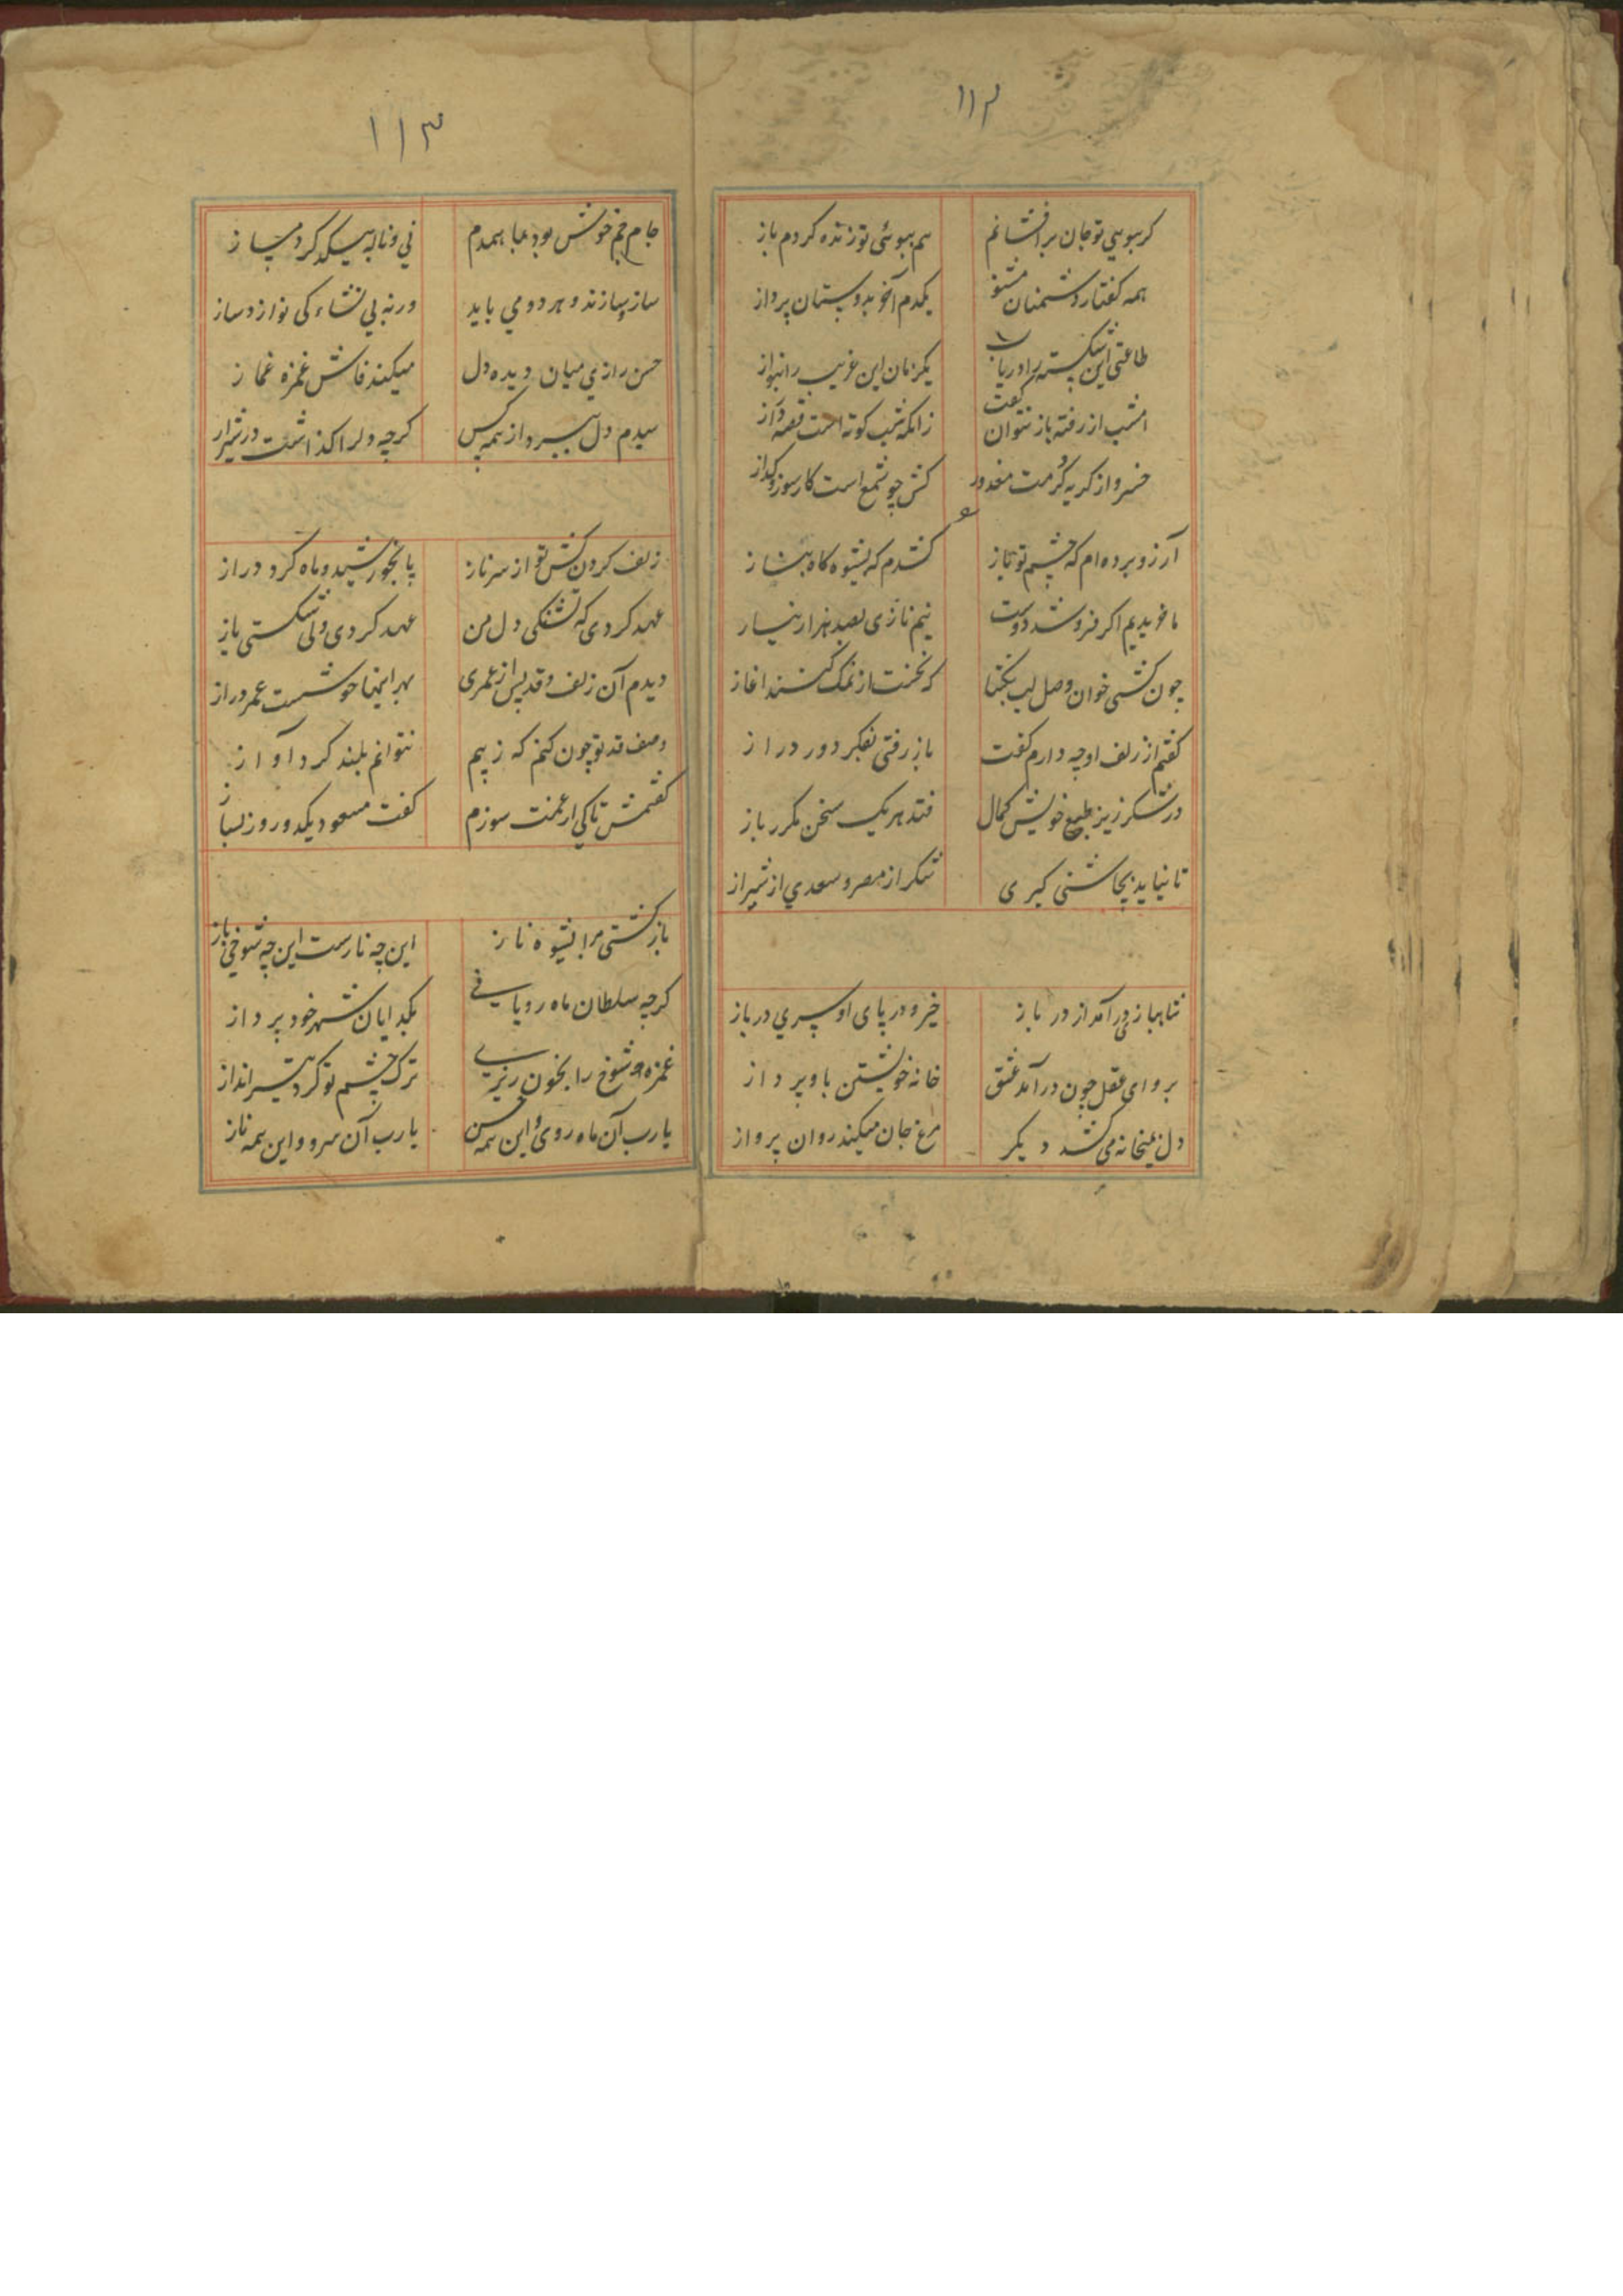 ۱۱۲
کر ببوی تو جان برافشانم
هم ببوئی تو زنده کردم باز
همه کفتار دشمنان مشنو
یکدم آخر بدوستان پرداز
طاعتی این شکسته را دریاب
یکزمان این غریب را بنواز
امشب از رفته باز نتوان کفت
زانکه شب کوته است قصه دراز
خسرو از کریه کرمت معذور
کش چو شمع است کار سوز و کداز
آرزو برده ام که چشم تو باز
کشدم که بشیوه کاه بناز
ما خریدیم اکر فروشد دوست
نیم نازی بصد هزار نیاز
چون کشی خوان وصل لب بکشا
که نخست از نمک کنند اغاز
کفتم از زلف او چه دارم کفت
باز رفتی بفکر دور دراز
در شکرریز طبع خویش کمال
فتد هر یک سخن مکرر باز
تا نیاید بچاشنی کیری
شکر از مصر و سعدی از شیراز
شاهبازی درآمد از در باز
خیز و در پای او سری درباز
برو ای عقل چون درآمد عشق
خانه خویشتن باو پرداز
دل بمیخانه می کشد دیکر
مرغ جان میکند روان پرواز
۱۱۳
جام جم خوش بود بما همدم
نی و ناله بیکدکر دمساز
ساز و سازنده هر دو می باید
ورنه بی نشاء کی نوازد ساز
حسن رازی میان دیده و دل
میکند فاش غمزه غماز
سیدم دل ببرد از همه کس
کرچه دل را کذاشت در شیراز
زلف کردن کش تو از سر ناز
پا بخورشید و ماه کرد دراز
عهد کردی که نشکنی دل من
عهد کردی ولی شکستی باز
دیدم آن زلف و قد پس از عمری
بهر اینها خوشست عمر دراز
وصف قد تو چون کنم که ز بیم
نتوانم بلند کرد آواز
کفتمش تا کی از غمت سوزم
کفت مسعود یکدو روز بساز
باز کشتی مرا بشیوه ناز
این چه نازست این چه شوخی باز
کرچه سلطان ماه رویانی
بکدایان شهر خود پرداز
غمزه شوخ را بخون ریزی
ترک چشم تو کرد تیرانداز
یارب آن ماه روی و این همه حسن
یارب آن سرو و این همه ناز